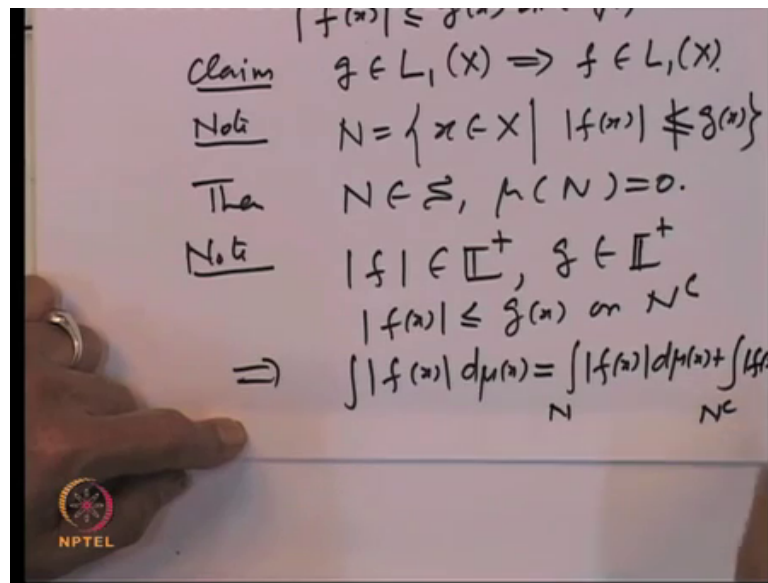 |f(x)| ≤ g(x) on
Claim g ∈ L₁(X) ⟹ f ∈ L₁(X).
Note N = { x ∈ X | |f(x)| ≰ g(x) }
Then N ∈ S, μ(N) = 0.
Note |f| ∈ 𝕃⁺, g ∈ 𝕃⁺
|f(x)| ≤ g(x) on Nᶜ
⟹ ∫|f(x)| dμ(x) = ∫_N |f(x)| dμ(x) + ∫_{Nᶜ} |f(x)
NPTEL